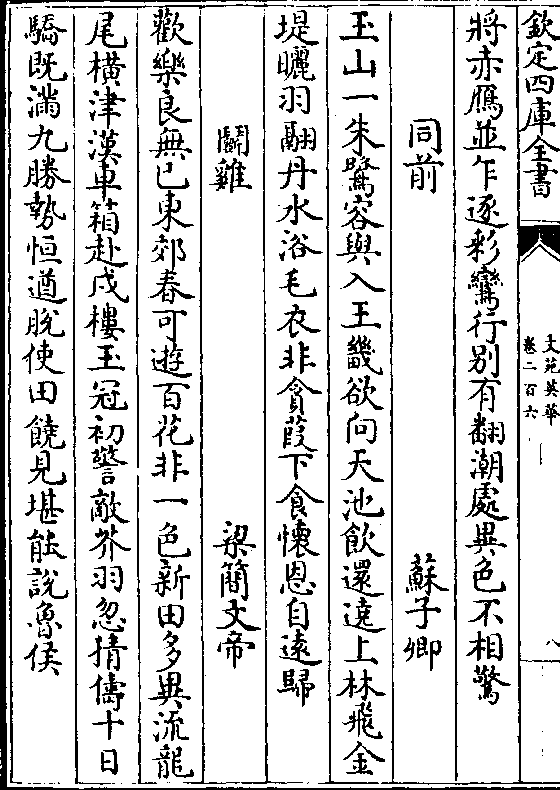 欽定四庫全書
文苑英華
卷二百六
八
將赤鴈並乍逐彩鸞行别有翻潮處異色不相驚
同前 蘇子卿
玉山一朱鷺容與入王畿欲向天池飲還遶上林飛金
堤曬羽翮丹水浴毛衣非貪葭下食懷恩自遠歸
鬭雞 梁簡文帝
歡樂良無已東郊春可遊百花非一色新田多異流龍
尾橫津漢車箱赴戍樓玉冠初警敵芥羽忽猜儔十日
驕既滿九勝勢恒遒脫使田饒見堪能說魯侯